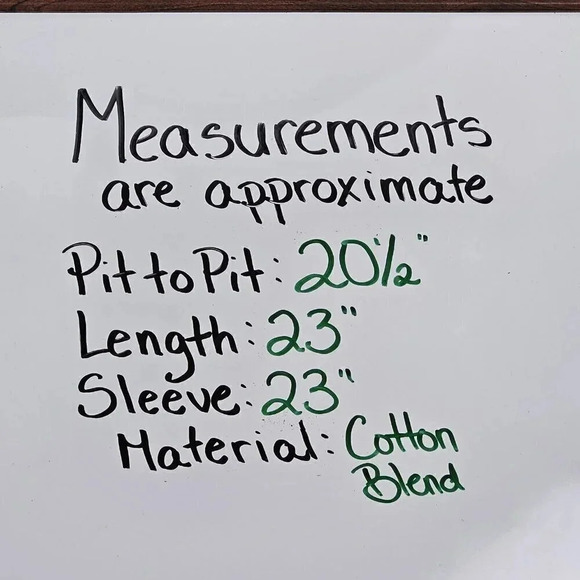 Measurements
are approximate
Pit to Pit: 20½"
Length: 23"
Sleeve: 23"
Material: Cotton
Blend